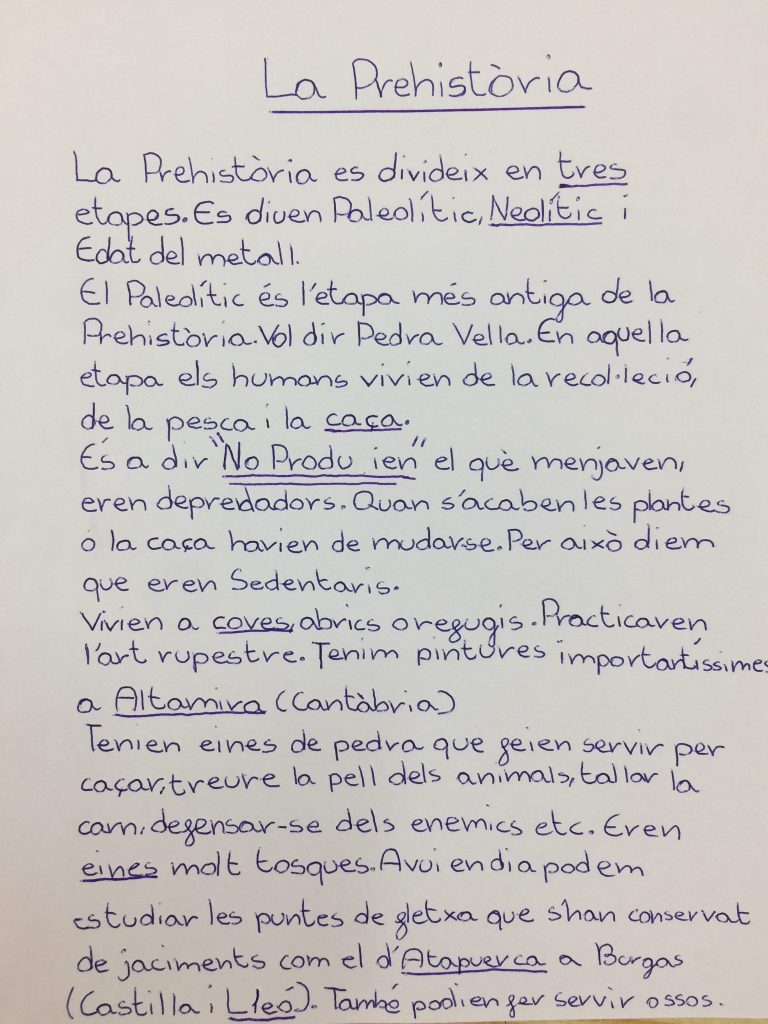 La Prehistòria
La Prehistòria es divideix en tres
etapes. Es diuen Paleolític, Neolític i
Edat del metall.
El Paleolític és l'etapa més antiga de la
Prehistòria. Vol dir Pedra Vella. En aquella
etapa els humans vivien de la recol·lecció,
de la pesca i la caça.
És a dir "No Produ ien" el què menjaven,
eren depredadors. Quan s'acaben les plantes
o la caça havien de mudar-se. Per això diem
que eren Sedentaris.
Vivien a coves, abrics o refugis. Practicaven
l'art rupestre. Tenim pintures importantíssimes
a Altamira (Cantàbria)
Tenien eines de pedra que feien servir per
caçar, treure la pell dels animals, tallar la
carn, defensar-se dels enemics etc. Eren
eines molt tosques. Avui en dia podem
estudiar les puntes de fletxa que s'han conservat
de jaciments com el d'Atapuerca a Burgos
(Castilla i Lleó). També podien fer servir ossos.